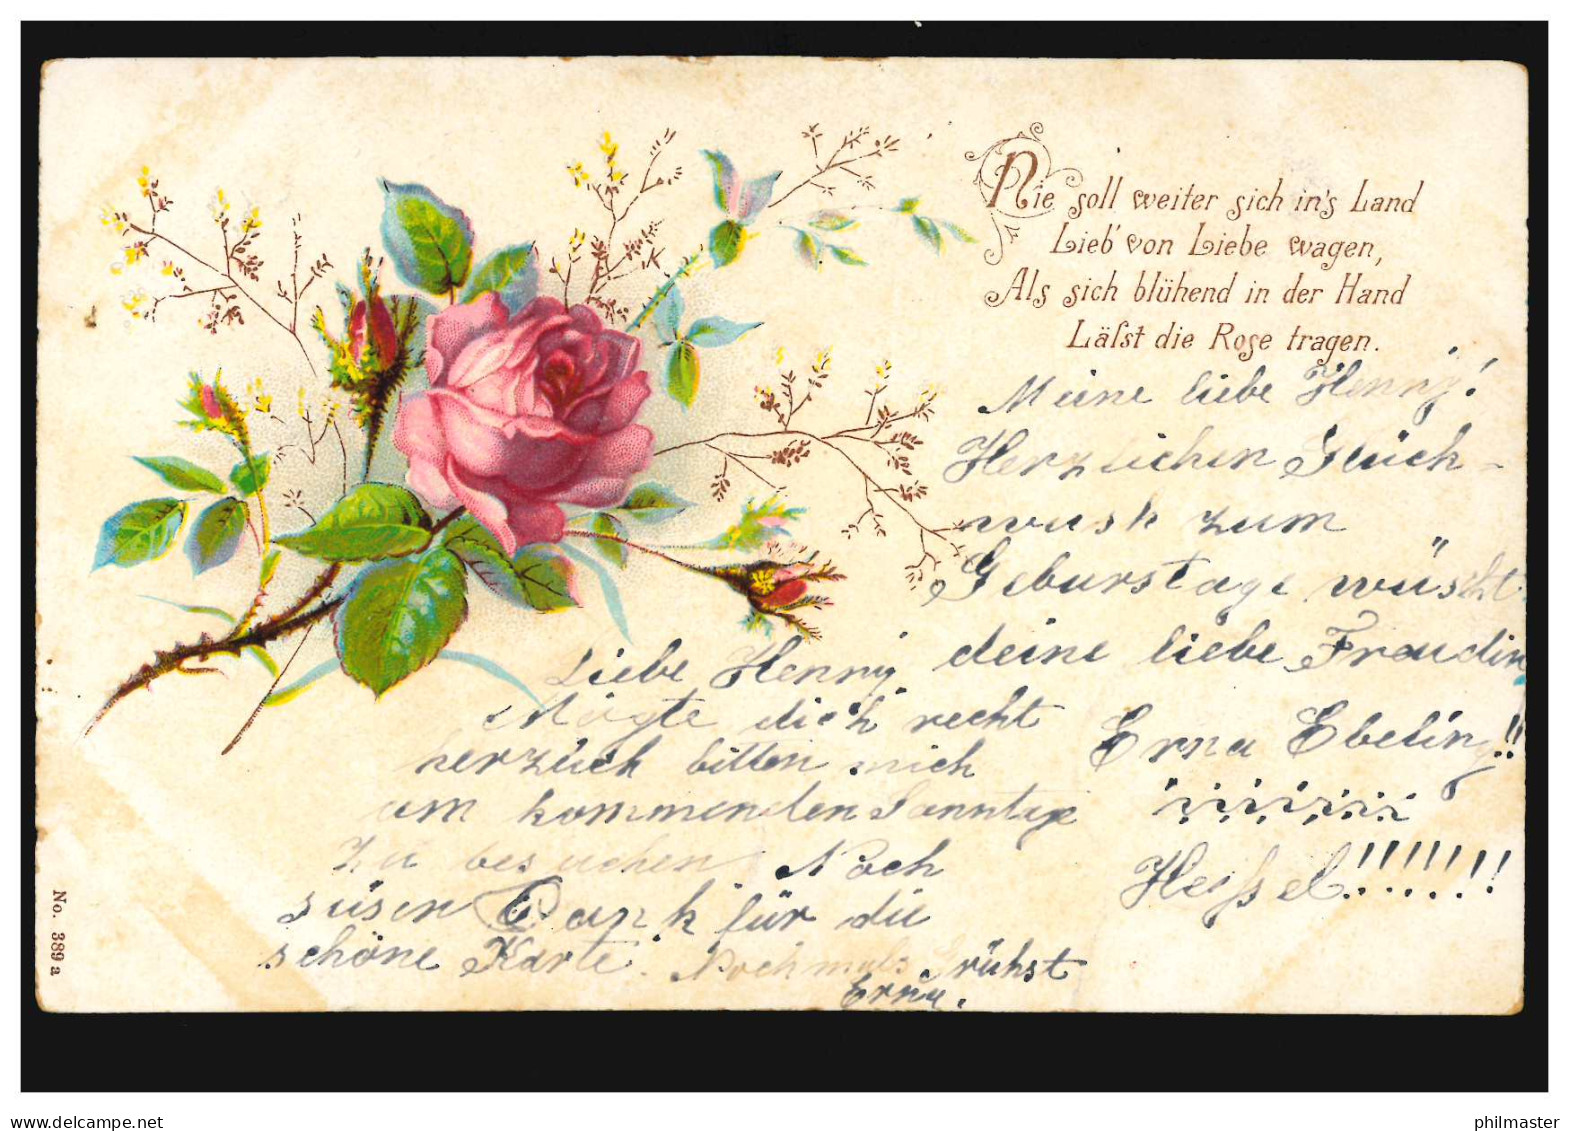 Nie soll weiter sich in's Land
Lieb' von Liebe wagen,
Als sich blühend in der Hand
Läſst die Rose tragen.
Meine liebe Henny!
Herzlichen Glück-
wush zum
Geburstage wüscht
deine liebe Fraudin
Erna Ebeling!!
!!!!!!!!
Liebe Henny
Mögte dich recht
herzlich bitten mich
am kommenden Sonntage
zu besuchen. Noch
süsen Dank für die
schöne Karte. Nochmals
Erna.
No. 389 a
delcampe.net
philmaster